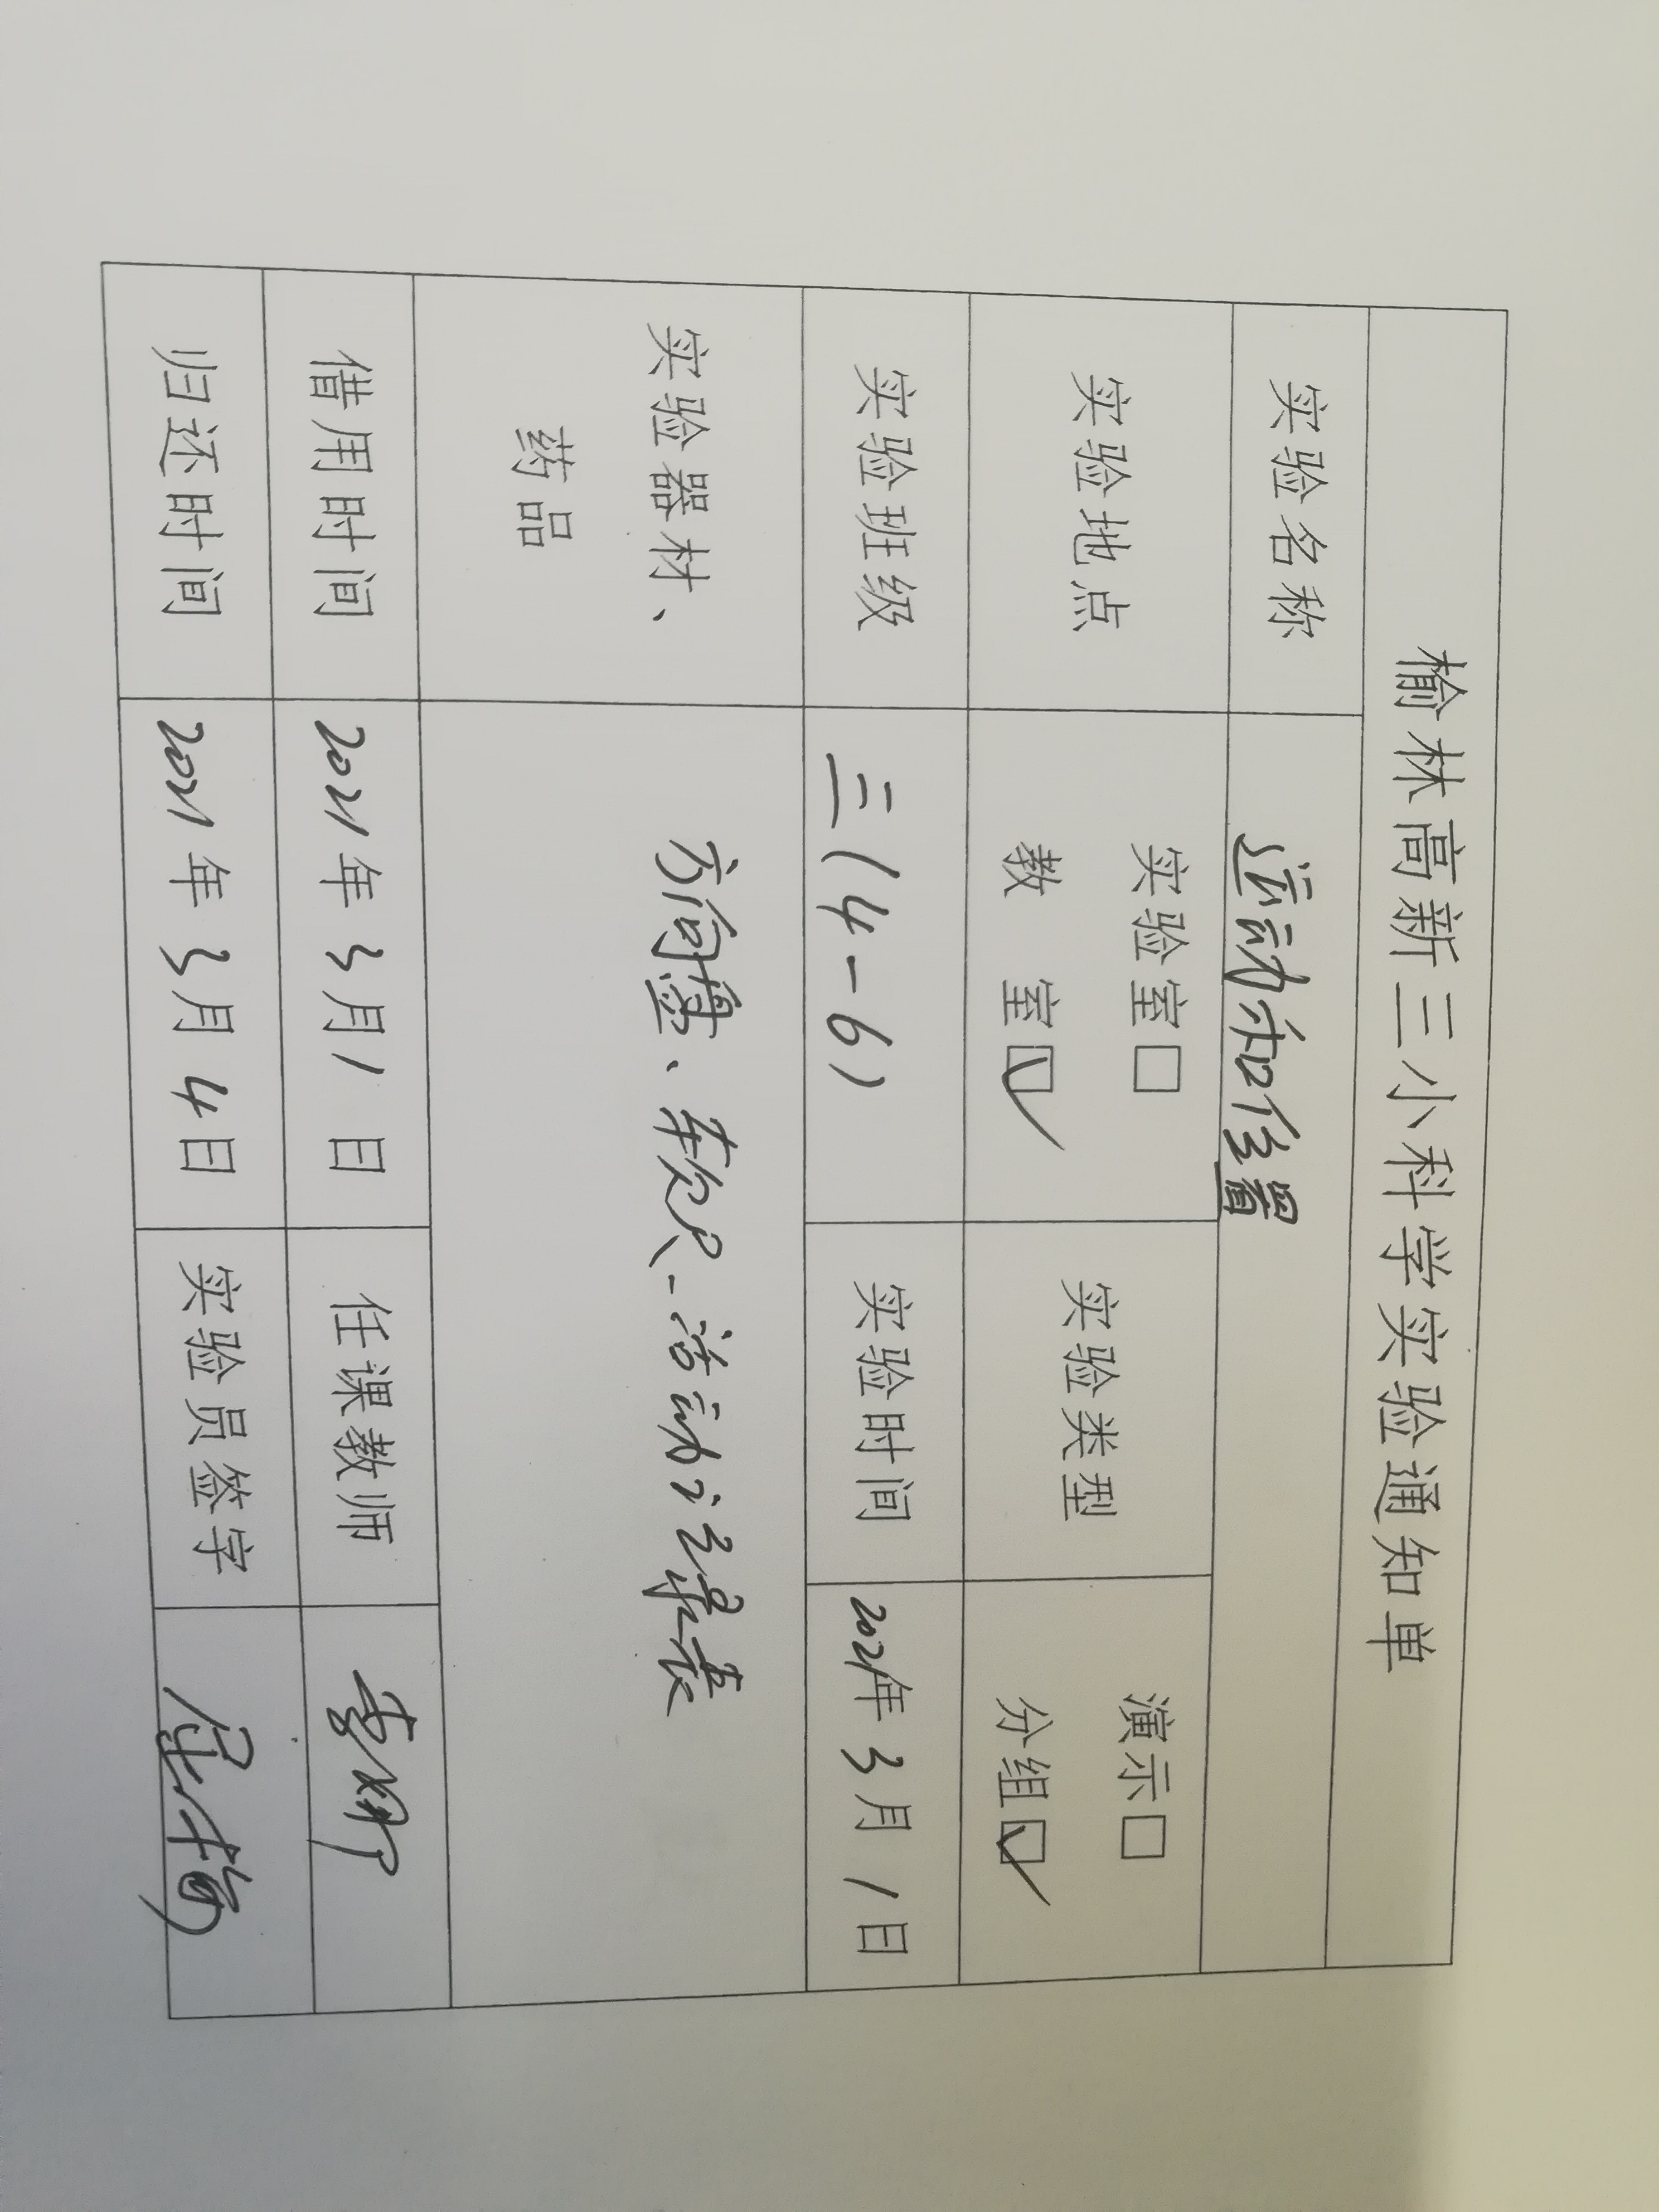 榆林高新三小科学实验通知单
实验名称 运动和位置
实验地点 实验室□ 教 室☑ 实验类型 演示□ 分组☑
实验班级 三(4-6) 实验时间 2021年3月1日
实验器材、药品 方向盘、软尺、活动记录表
借用时间 2021年3月1日 任课教师
归还时间 2021年3月4日 实验员签字